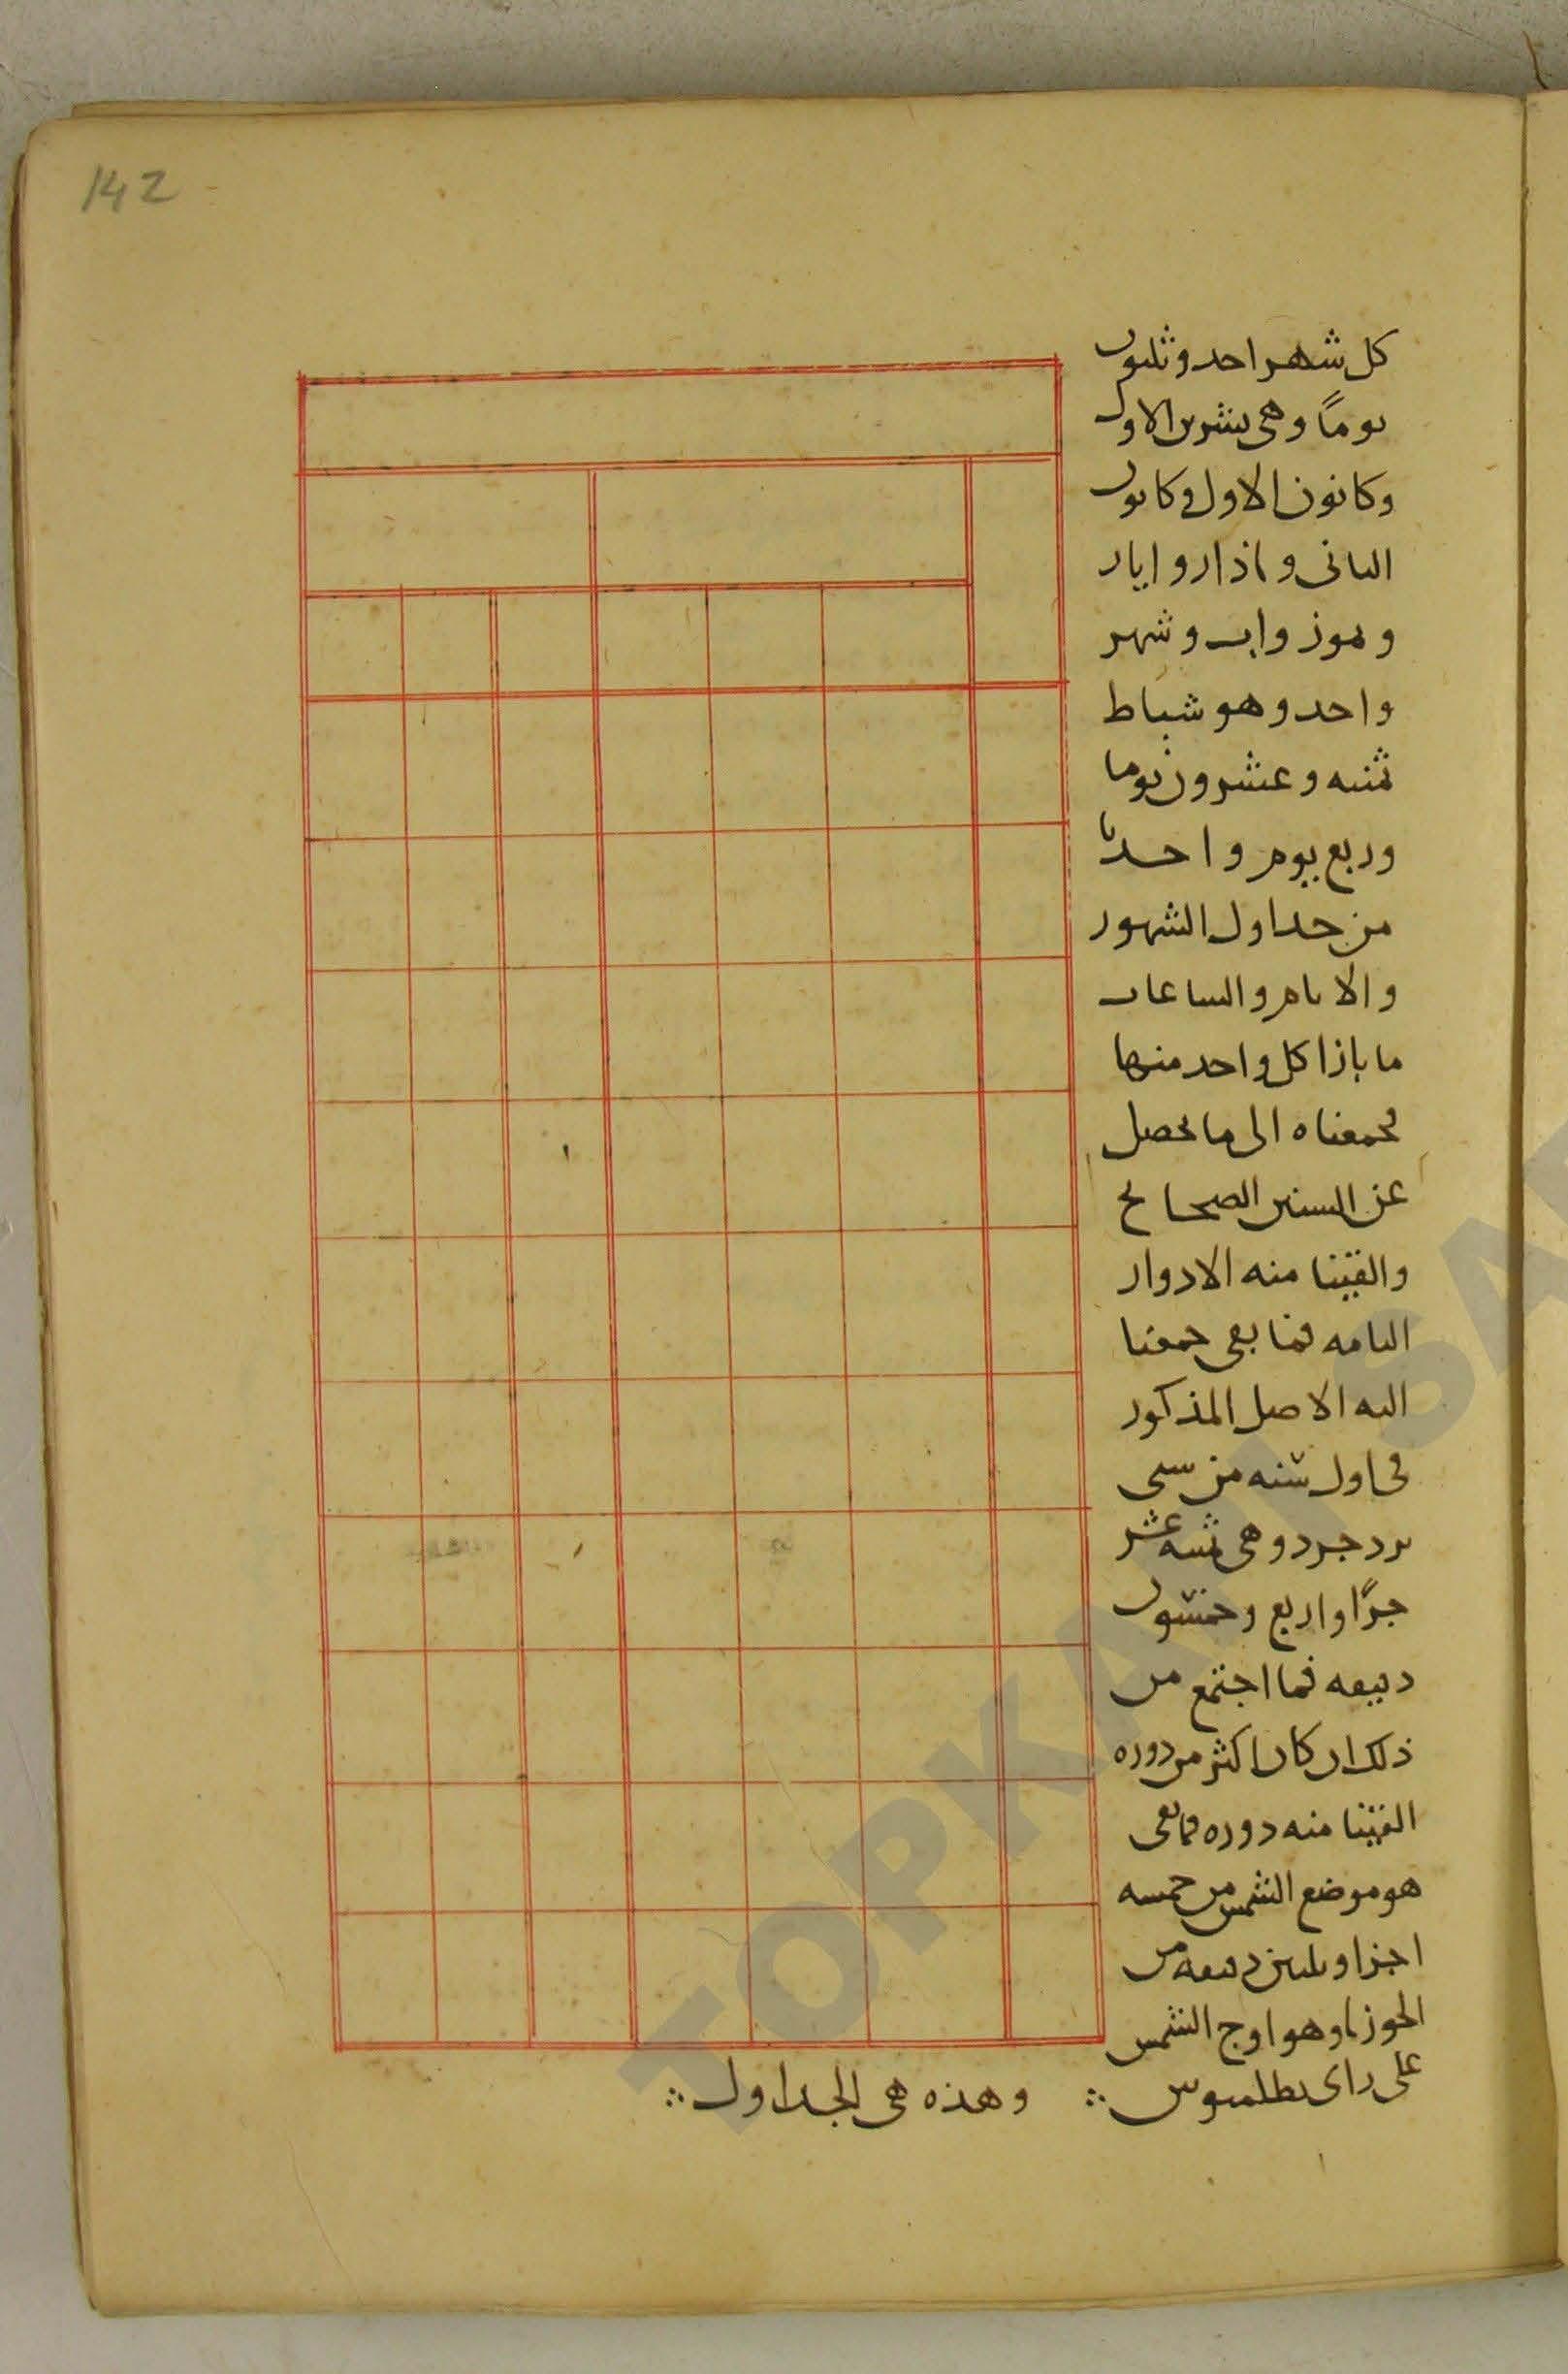 142
كل شهر احد وثلثون
يوماً وهى تشرين الاول
وكانون الاول وكانون
الثانى واذار وايار
وتموز واب وشهر
واحد وهو شباط
ثمنيه وعشرون يوما
وربع يوم واخذنا
من جداول الشهور
والايام والساعات
ما بازا كل واحد منها
فجمعناه الى ما تحصل
عن السنين الصحاح
والقينا منه الادوار
التامه فما بقى جمعنا
اليه الاصل المذكور
فى اول سنه من سنى
يزدجرد وهى ثمنيه عشر
جزًا واربع وخمسون
دقيقه فما اجتمع من
ذلك ان كان اكثر من دوره
القينا منه دوره فما بقى
هو موضع الشمس من خمسه
اجزا وثلثين دقيقه من
الجوزا وهو اوج الشمس
على راى بطلميوس ∴ وهذه هى الجداول ∴
TOPKAPI SA